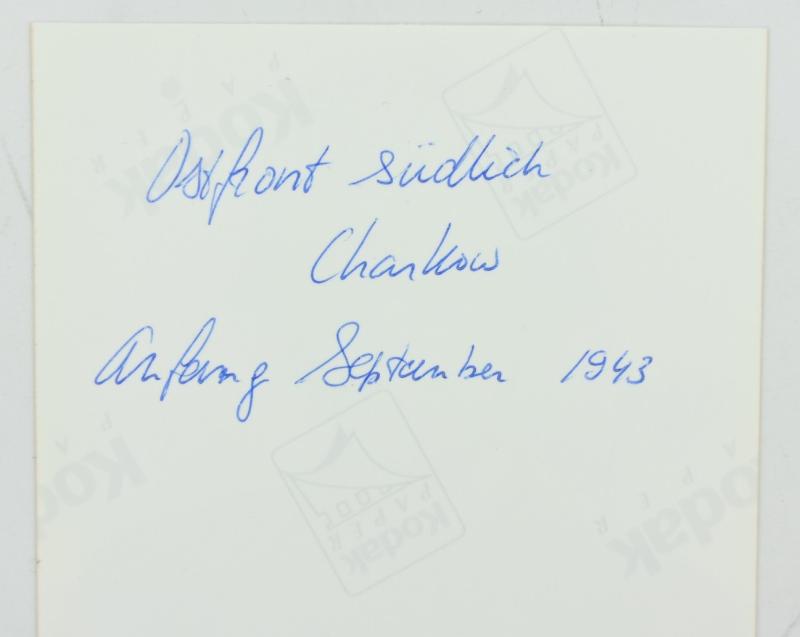 Ostfront südlich
Charkow
Anfang September 1943
Kodak
PAPER
Kodak
PAPER
Kodak
Kodak
PAPER
Kodak
PAPER